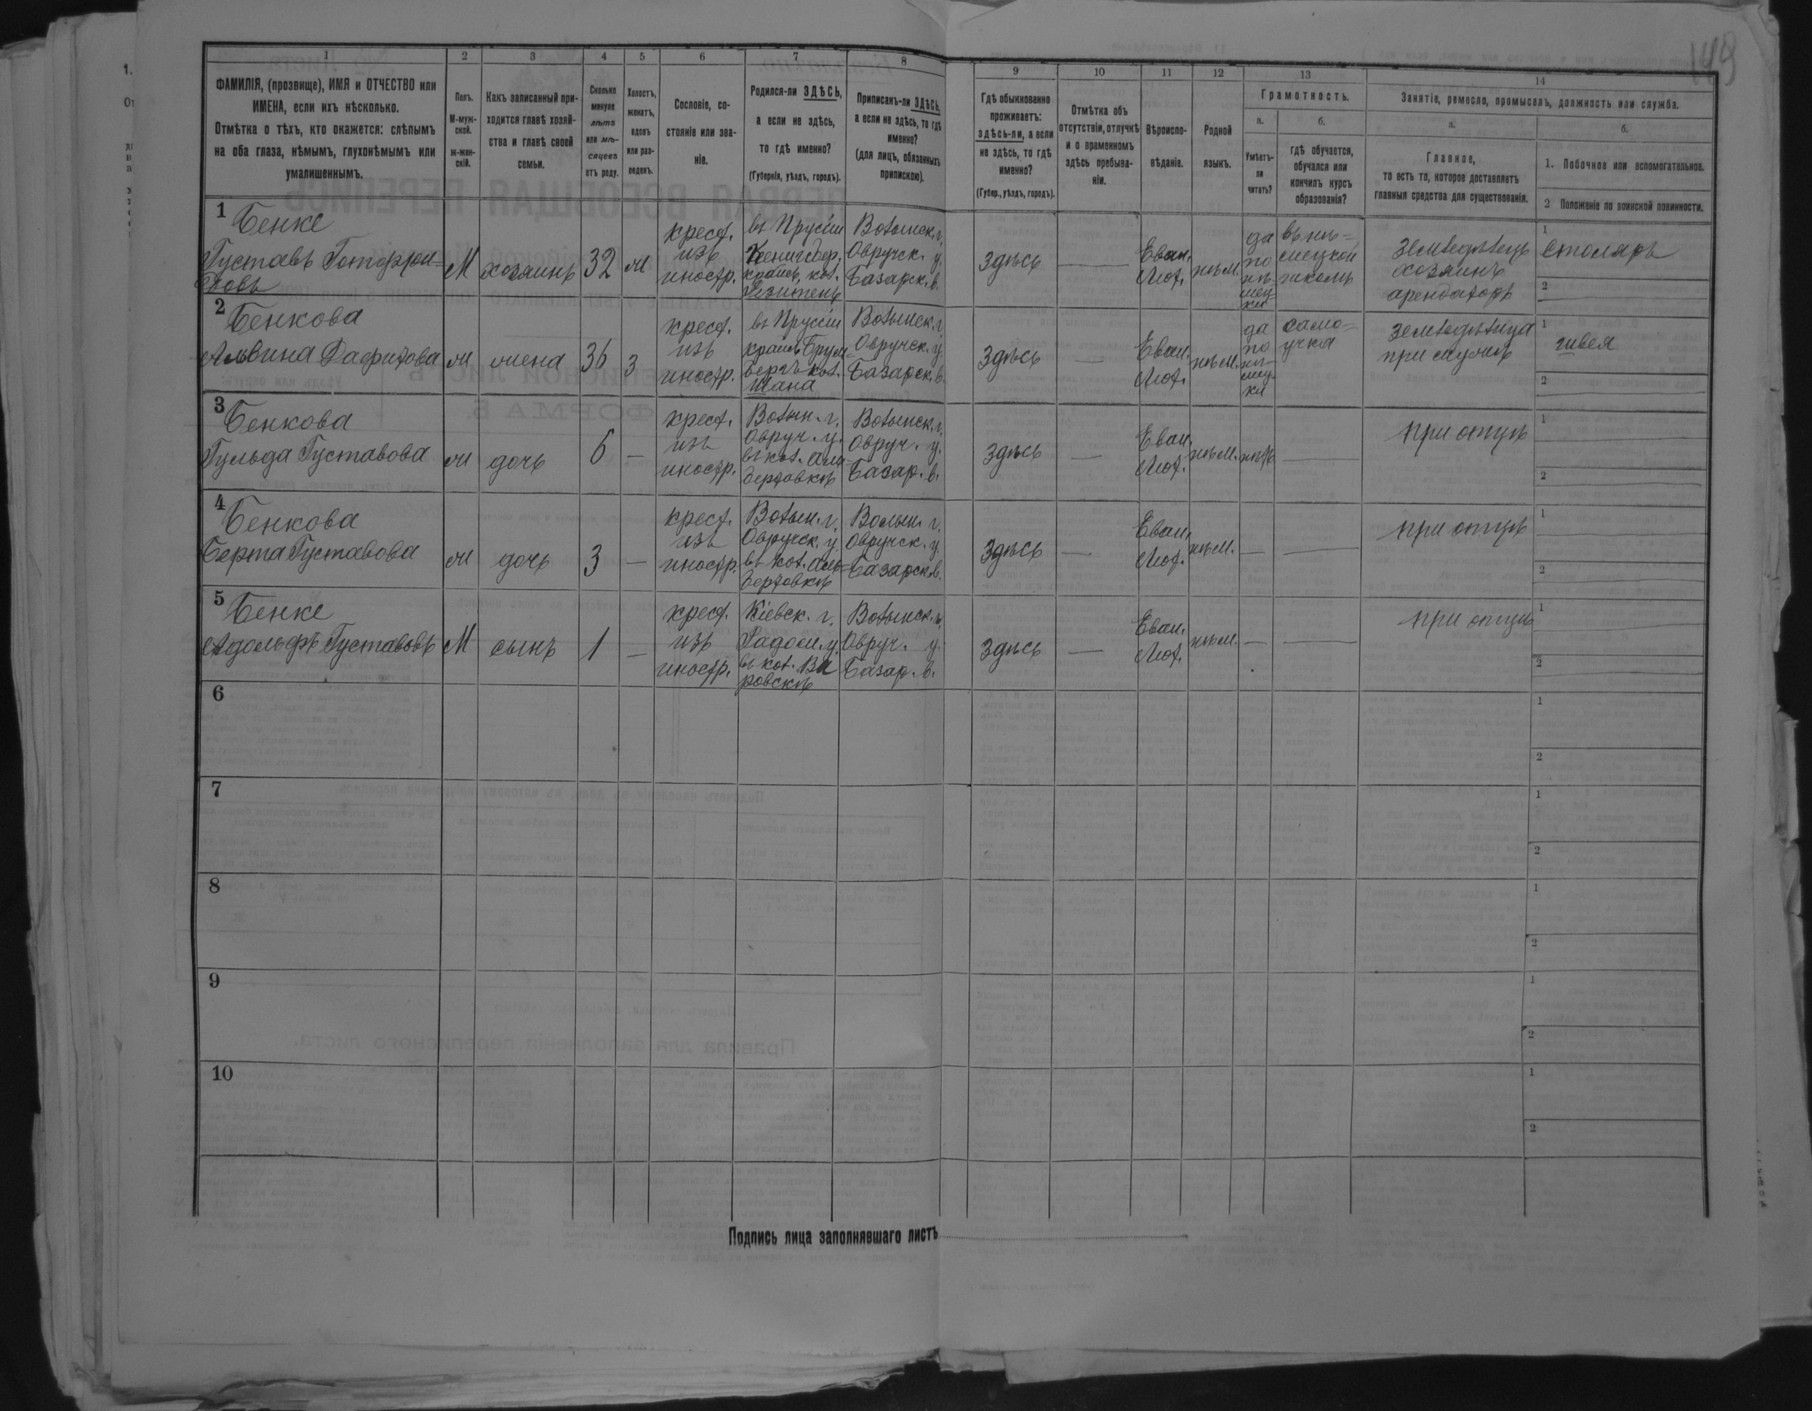 149
1
2
3
4
5
6
7
8
9
10
11
12
13
14
ФАМИЛІЯ, (прозвище), ИМЯ и ОТЧЕСТВО или
ИМЕНА, если ихъ нѣсколько.
Отмѣтка о тѣхъ, кто окажется: слѣпымъ
на оба глаза, нѣмымъ, глухонѣмымъ или
умалишеннымъ.
Полъ.
М-муж-
ской.
Ж-жен-
скій.
Какъ записанный при-
ходится главѣ хозяй-
ства и главѣ своей
семьи.
Сколько
минуло
лѣтъ
или мѣ-
сяцевъ
отъ роду.
Холостъ,
женатъ,
вдовъ
или раз-
веденъ.
Сословіе, со-
стояніе или зва-
ніе.
Родился-ли ЗДѢСЬ,
а если не здѣсь,
то гдѣ именно?
(Губернія, уѣздъ, городъ).
Приписанъ-ли ЗДѢСЬ,
а если не здѣсь, то гдѣ
именно?
(для лицъ, обязанныхъ
припискою).
Гдѣ обыкновенно
проживаетъ:
здѣсь-ли, а если
не здѣсь, то гдѣ
именно?
(Губер., уѣздъ, городъ).
Отмѣтка объ
отсутствіи, отлучкѣ
и о временномъ
здѣсь пребыва-
ніи.
Вѣроиспо-
вѣданіе.
Родной
языкъ.
Грамотность.
а.
Умѣетъ-
ли
читать?
б.
гдѣ обучается,
обучался или
кончилъ курсъ
образованія?
Занятіе, ремесло, промыселъ, должность или служба.
а.
Главное,
то есть то, которое доставляетъ
главныя средства для существованія.
б.
1. Побочное или вспомогательное.
2 Положеніе по воинской повинности.
1
Бенке
Густавъ Готфри-
довъ
М
хозяинъ
32
ж
крест.
изъ
иностр.
въ Пруссіи
Кенигсбер.
краиъ, кол.
Волынск. г.
Овручск. у.
Базарск. в.
Здѣсь
Еван.
Лют.
нѣм.
да
по
нѣ-
мец-
ки
въ нѣ-
мецкой
школѣ
земледѣлецъ
хозяинъ
арендаторъ
1
столяръ
2
2
Бенкова
Альвина
ж
жена
36
З
крест.
изъ
иностр.
въ Пруссіи
Волынск. г.
Овручск. у.
Базарск. в.
Здѣсь
Еван.
Лют.
нѣм.
да
по
нѣ-
мец-
ки
само-
учка
земледѣлица
при мужѣ
1
швея
2
3
Бенкова
Гульда Густавова
ж
дочь
6
крест.
изъ
иностр.
Волын. г.
Овруч. у.
въ кол. Аль-
бертовкѣ
Волынск. г.
Овруч. у.
Базар. в.
Здѣсь
Еван.
Лют.
нѣм.
нѣтъ
при отцѣ
1
2
4
Бенкова
Берта Густавова
ж
дочь
3
крест.
изъ
иностр.
Волын. г.
Овручск. у.
въ кол. Аль-
бертовкѣ
Волын. г.
Овручск. у.
Базарск. в.
Здѣсь
Еван.
Лют.
нѣм.
при отцѣ
1
2
5
Бенке
Адольфъ Густавовъ
М
сынъ
1
крест.
изъ
иностр.
Кіевск. г.
Радом. у.
въ кол. Ви
ровскѣ
Волынск. г.
Овруч. у.
Базар. в.
Здѣсь
Еван.
Лют.
нѣм.
при отцѣ
1
2
6
1
2
7
1
2
8
1
2
9
1
2
10
1
2
Подпись лица заполнявшаго листъ